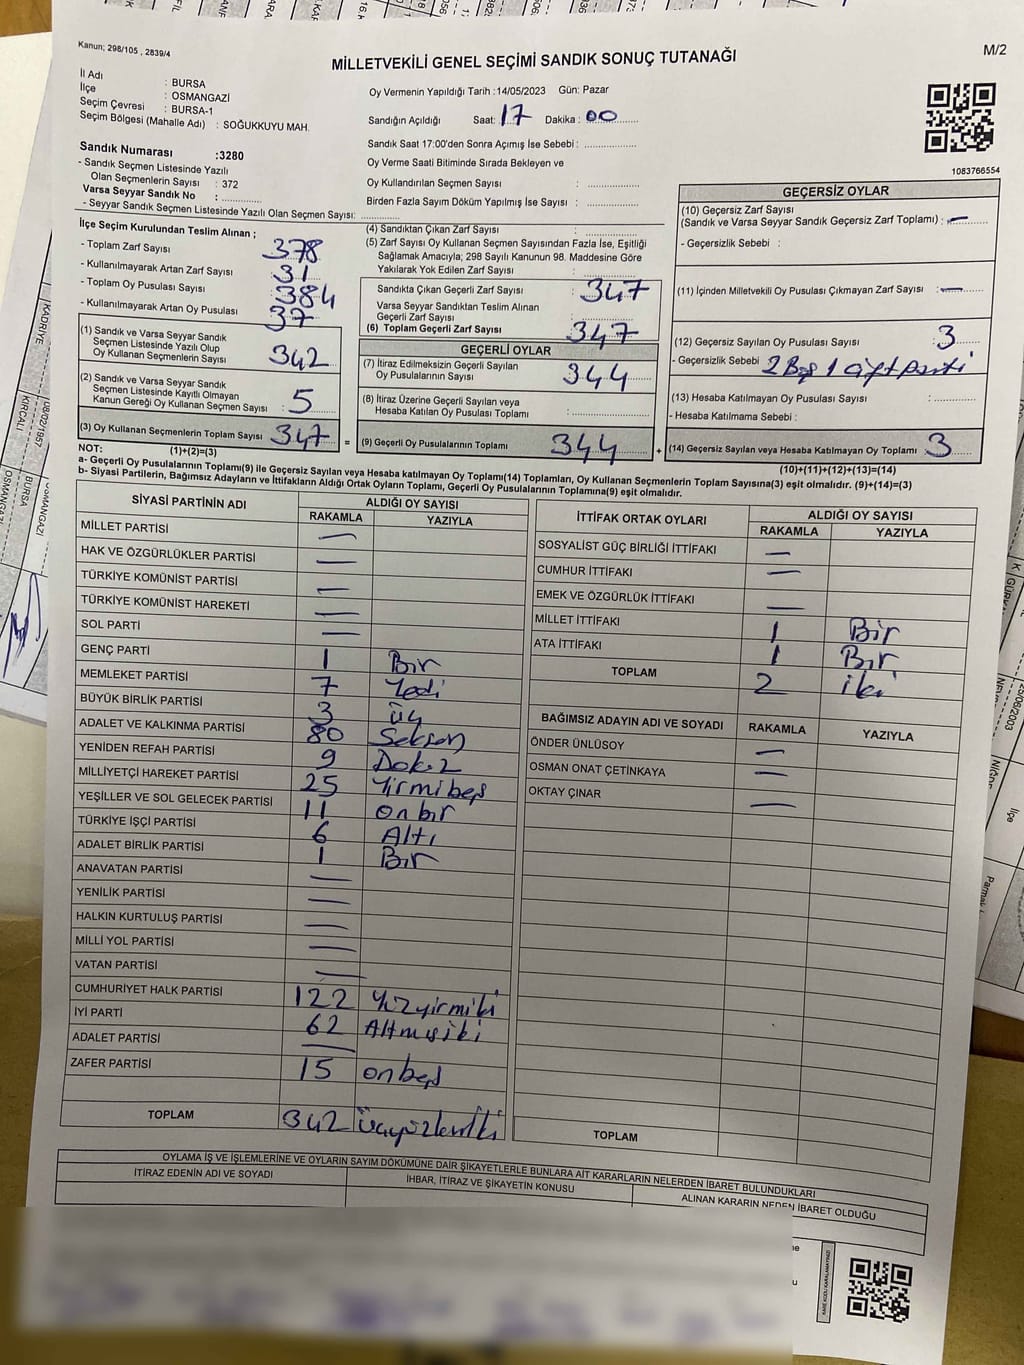 Kanun; 298/105 , 2839/4
M/2
MİLLETVEKİLİ GENEL SEÇİMİ SANDIK SONUÇ TUTANAĞI
İl Adı : BURSA
İlçe : OSMANGAZİ
Seçim Çevresi : BURSA-1
Seçim Bölgesi (Mahalle Adı) : SOĞUKKUYU MAH.
Sandık Numarası :3280
- Sandık Seçmen Listesinde Yazılı
Olan Seçmenlerin Sayısı : 372
Varsa Seyyar Sandık No :
- Seyyar Sandık Seçmen Listesinde Yazılı Olan Seçmen Sayısı:
Oy Vermenin Yapıldığı Tarih :14/05/2023 Gün: Pazar
Sandığın Açıldığı Saat: 17 Dakika : 00
Sandık Saat 17:00'den Sonra Açımış İse Sebebi :
Oy Verme Saati Bitiminde Sırada Bekleyen ve
Oy Kullandırılan Seçmen Sayısı :
Birden Fazla Sayım Döküm Yapılmış İse Sayısı :
1083766554
İlçe Seçim Kurulundan Teslim Alınan ;
- Toplam Zarf Sayısı 378
- Kullanılmayarak Artan Zarf Sayısı 31
- Toplam Oy Pusulası Sayısı 384
- Kullanılmayarak Artan Oy Pusulası 37
(1) Sandık ve Varsa Seyyar Sandık
Seçmen Listesinde Yazılı Olup
Oy Kullanan Seçmenlerin Sayısı 342
(2) Sandık ve Varsa Seyyar Sandık
Seçmen Listesinde Kayıtlı Olmayan
Kanun Gereği Oy Kullanan Seçmen Sayısı : 5
(3) Oy Kullanan Seçmenlerin Toplam Sayısı 347 =
(1)+(2)=(3)
(4) Sandıktan Çıkan Zarf Sayısı :
(5) Zarf Sayısı Oy Kullanan Seçmen Sayısından Fazla İse, Eşitliği
Sağlamak Amacıyla; 298 Sayılı Kanunun 98. Maddesine Göre
Yakılarak Yok Edilen Zarf Sayısı :
Sandıkta Çıkan Geçerli Zarf Sayısı : 347
Varsa Seyyar Sandıktan Teslim Alınan
Geçerli Zarf Sayısı :
(6) Toplam Geçerli Zarf Sayısı 347
GEÇERLİ OYLAR
(7) İtiraz Edilmeksizin Geçerli Sayılan
Oy Pusulalarının Sayısı : 344
(8) İtiraz Üzerine Geçerli Sayılan veya
Hesaba Katılan Oy Pusulası Toplamı :
(9) Geçerli Oy Pusulalarının Toplamı 344 +
GEÇERSİZ OYLAR
(10) Geçersiz Zarf Sayısı
(Sandık ve Varsa Seyyar Sandık Geçersiz Zarf Toplamı) : —
- Geçersizlik Sebebi :
(11) İçinden Milletvekili Oy Pusulası Çıkmayan Zarf Sayısı : —
(12) Geçersiz Sayılan Oy Pusulası Sayısı : 3
- Geçersizlik Sebebi 2 Boş 1 çift parti
(13) Hesaba Katılmayan Oy Pusulası Sayısı :
- Hesaba Katılmama Sebebi :
(14) Geçersiz Sayılan veya Hesaba Katılmayan Oy Toplamı 3
(10)+(11)+(12)+(13)=(14)
NOT:
a- Geçerli Oy Pusulalarının Toplamı(9) ile Geçersiz Sayılan veya Hesaba katılmayan Oy Toplamı(14) Toplamları, Oy Kullanan Seçmenlerin Toplam Sayısına(3) eşit olmalıdır. (9)+(14)=(3)
b- Siyasi Partilerin, Bağımsız Adayların ve İttifakların Aldığı Ortak Oyların Toplamı, Geçerli Oy Pusulalarının Toplamına(9) eşit olmalıdır.
SİYASİ PARTİNİN ADI ALDIĞI OY SAYISI
RAKAMLA YAZIYLA
MİLLET PARTİSİ —
HAK VE ÖZGÜRLÜKLER PARTİSİ —
TÜRKİYE KOMÜNİST PARTİSİ —
TÜRKİYE KOMÜNİST HAREKETİ —
SOL PARTİ —
GENÇ PARTİ 1 Bir
MEMLEKET PARTİSİ 7 Yedi
BÜYÜK BİRLİK PARTİSİ 3 üç
ADALET VE KALKINMA PARTİSİ 80 Seksen
YENİDEN REFAH PARTİSİ 9 Dokuz
MİLLİYETÇİ HAREKET PARTİSİ 25 Yirmibeş
YEŞİLLER VE SOL GELECEK PARTİSİ 11 onbir
TÜRKİYE İŞÇİ PARTİSİ 6 Altı
ADALET BİRLİK PARTİSİ 1 Bir
ANAVATAN PARTİSİ —
YENİLİK PARTİSİ —
HALKIN KURTULUŞ PARTİSİ —
MİLLİ YOL PARTİSİ —
VATAN PARTİSİ —
CUMHURİYET HALK PARTİSİ 122 Yüzyirmiiki
İYİ PARTİ 62 Altmışiki
ADALET PARTİSİ —
ZAFER PARTİSİ 15 onbeş
TOPLAM 342 üçyüzkırkiki
İTTİFAK ORTAK OYLARI ALDIĞI OY SAYISI
RAKAMLA YAZIYLA
SOSYALİST GÜÇ BİRLİĞİ İTTİFAKI —
CUMHUR İTTİFAKI —
EMEK VE ÖZGÜRLÜK İTTİFAKI —
MİLLET İTTİFAKI 1 Bir
ATA İTTİFAKI 1 Bir
TOPLAM 2 iki
BAĞIMSIZ ADAYIN ADI VE SOYADI RAKAMLA YAZIYLA
ÖNDER ÜNLÜSOY —
OSMAN ONAT ÇETİNKAYA —
OKTAY ÇINAR —
TOPLAM
OYLAMA İŞ VE İŞLEMLERİNE VE OYLARIN SAYIM DÖKÜMÜNE DAİR ŞİKAYETLERLE BUNLARA AİT KARARLARIN NELERDEN İBARET BULUNDUKLARI
İTİRAZ EDENİN ADI VE SOYADI İHBAR, İTİRAZ VE ŞİKAYETİN KONUSU ALINAN KARARIN NEDEN İBARET OLDUĞU
KADRİYE
KIRCALI
08/02/1957
BURSA
OSMANGAZİ
25/06/2003
İlçe